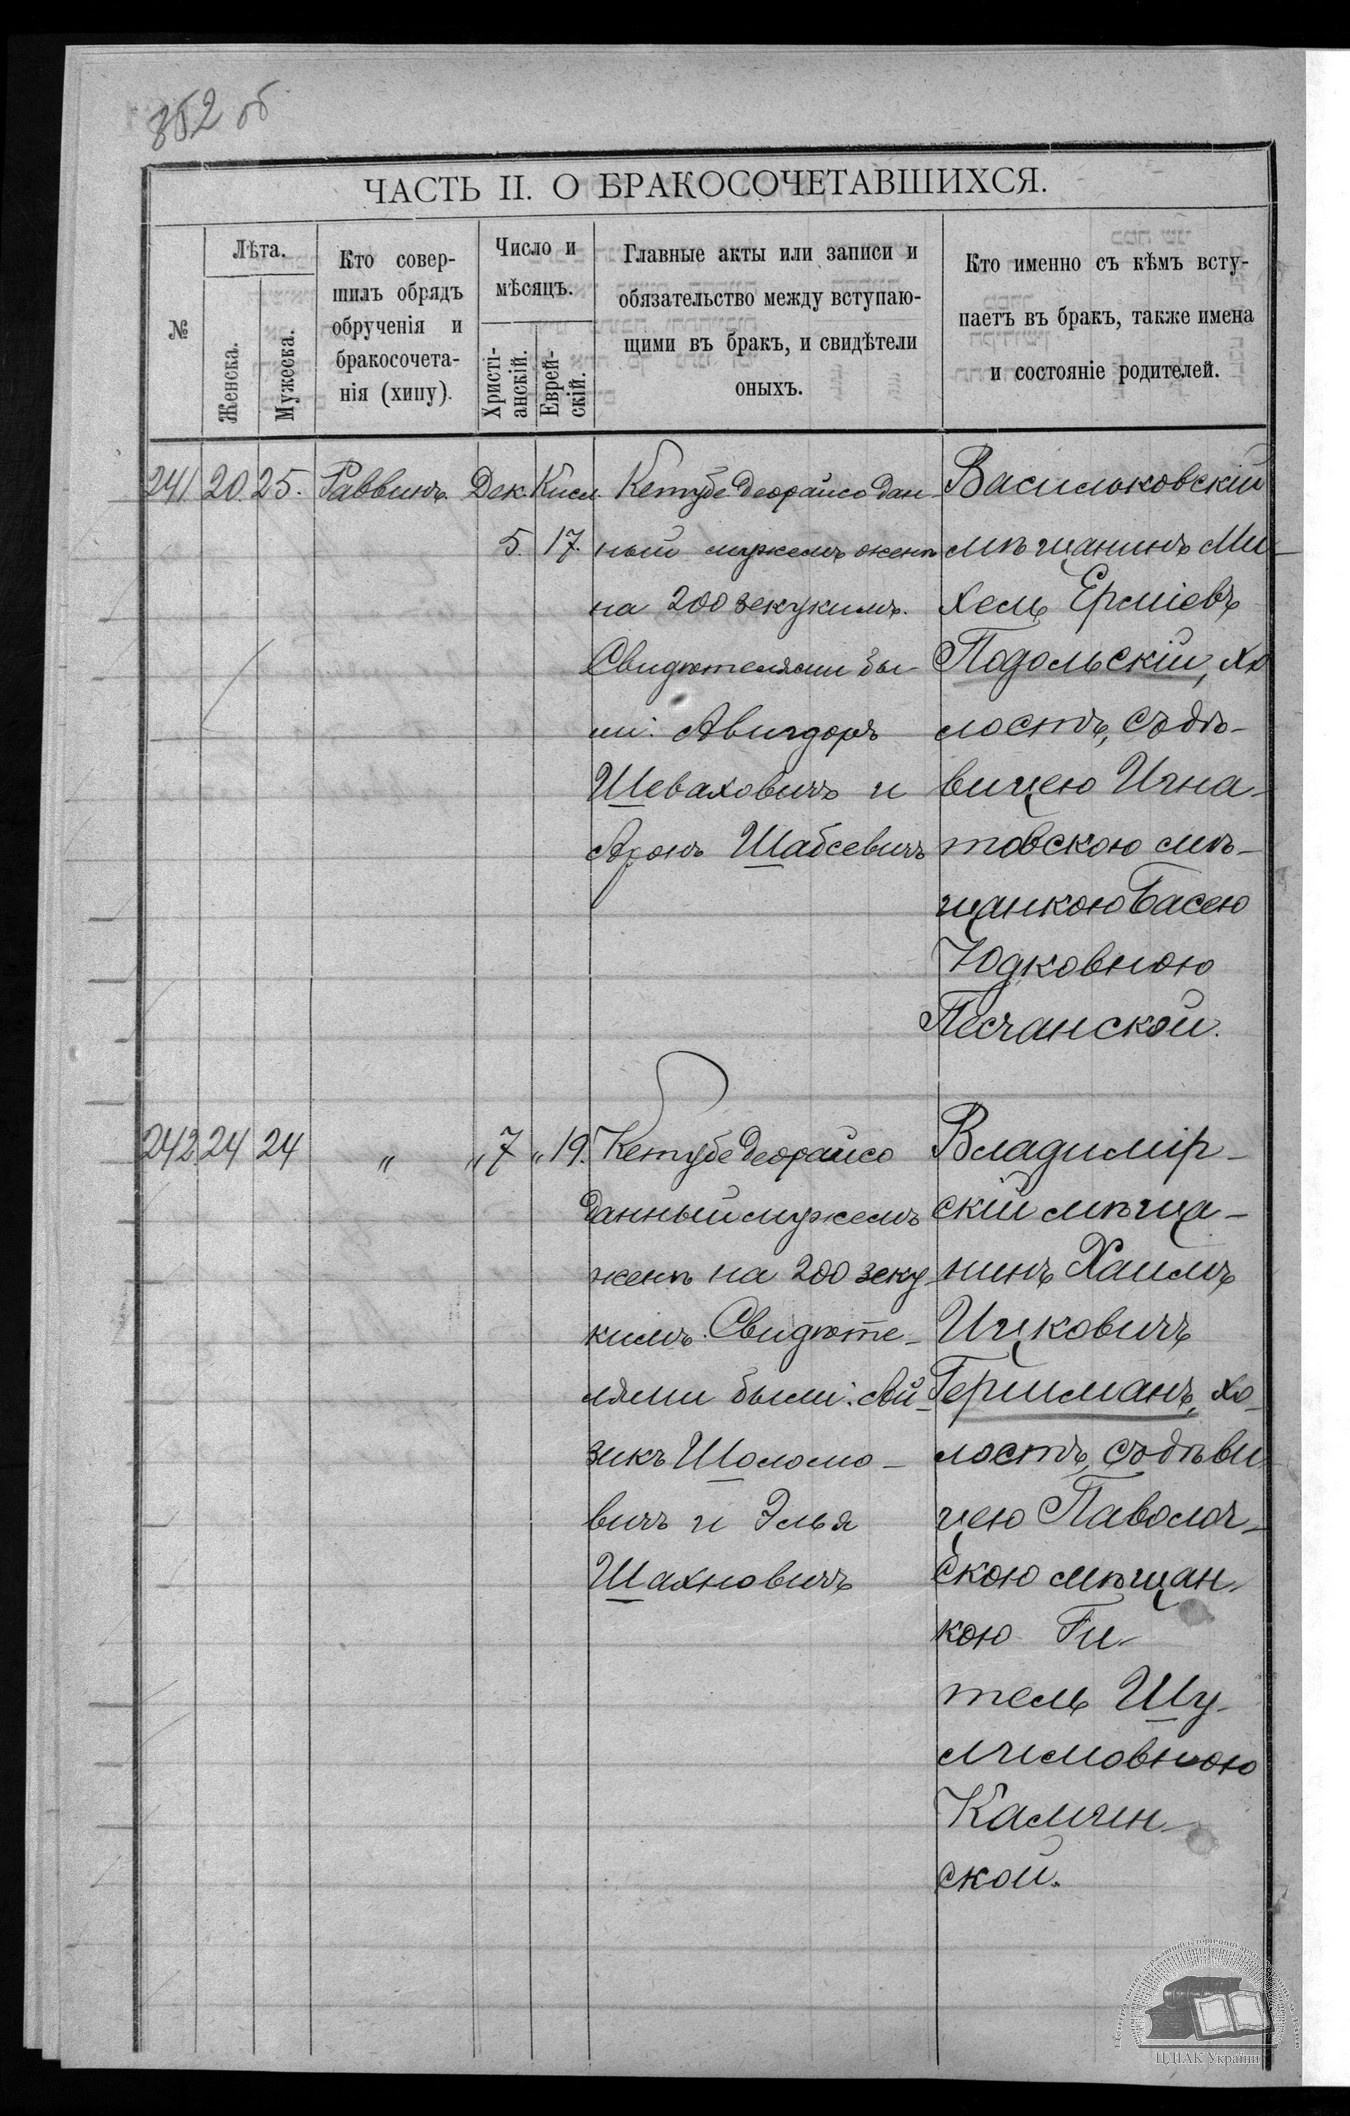 352 об
ЧАСТЬ II. О БРАКОСОЧЕТАВШИХСЯ.
№
Лѣта.
Женска.
Мужеска.
Кто совер-
шилъ обрядъ
обрученія и
бракосочета-
нія (хипу).
Число и
мѣсяцъ.
Христі-
анскій.
Еврей-
скій.
Главные акты или записи и
обязательство между вступаю-
щими въ бракъ, и свидѣтели
оныхъ.
Кто именно съ кѣмъ всту-
паетъ въ бракъ, также имена
и состояніе родителей.
241 20 25. Раввинъ. Дек. Кисл.
5. 17.
Кетубе деорайсо дан-
ный мужемъ женѣ
на 200 зекукимъ.
Свидѣтелями бы-
ли: Авигдоръ
Шеваховичъ и
Аронъ Шабсевичъ
Васильковскій
мѣщанинъ Ми-
хель Ерміевъ
Подольскій, хо
лостъ, съ дѣ-
вицею Игна-
товскою мѣ-
щанкою Басею
Юдковною
Песчанской.
242 24 24 „ „ 7 „ 19.
Кетубе деорайсо
данный мужемъ
женѣ на 200 зеку
кимъ. Свидѣте-
лями были: Ай-
зикъ Шоломо-
вичъ и Элья
Шахновичъ
Владимір-
скій мѣща-
нинъ Хаимъ
Ицковичъ
Гершманъ, хо-
лостъ, съ дѣви
цею Паволоч-
скою мѣщан-
кою Ги-
тель Шу-
лимовною
Камин-
ской.
ЦДІАК України